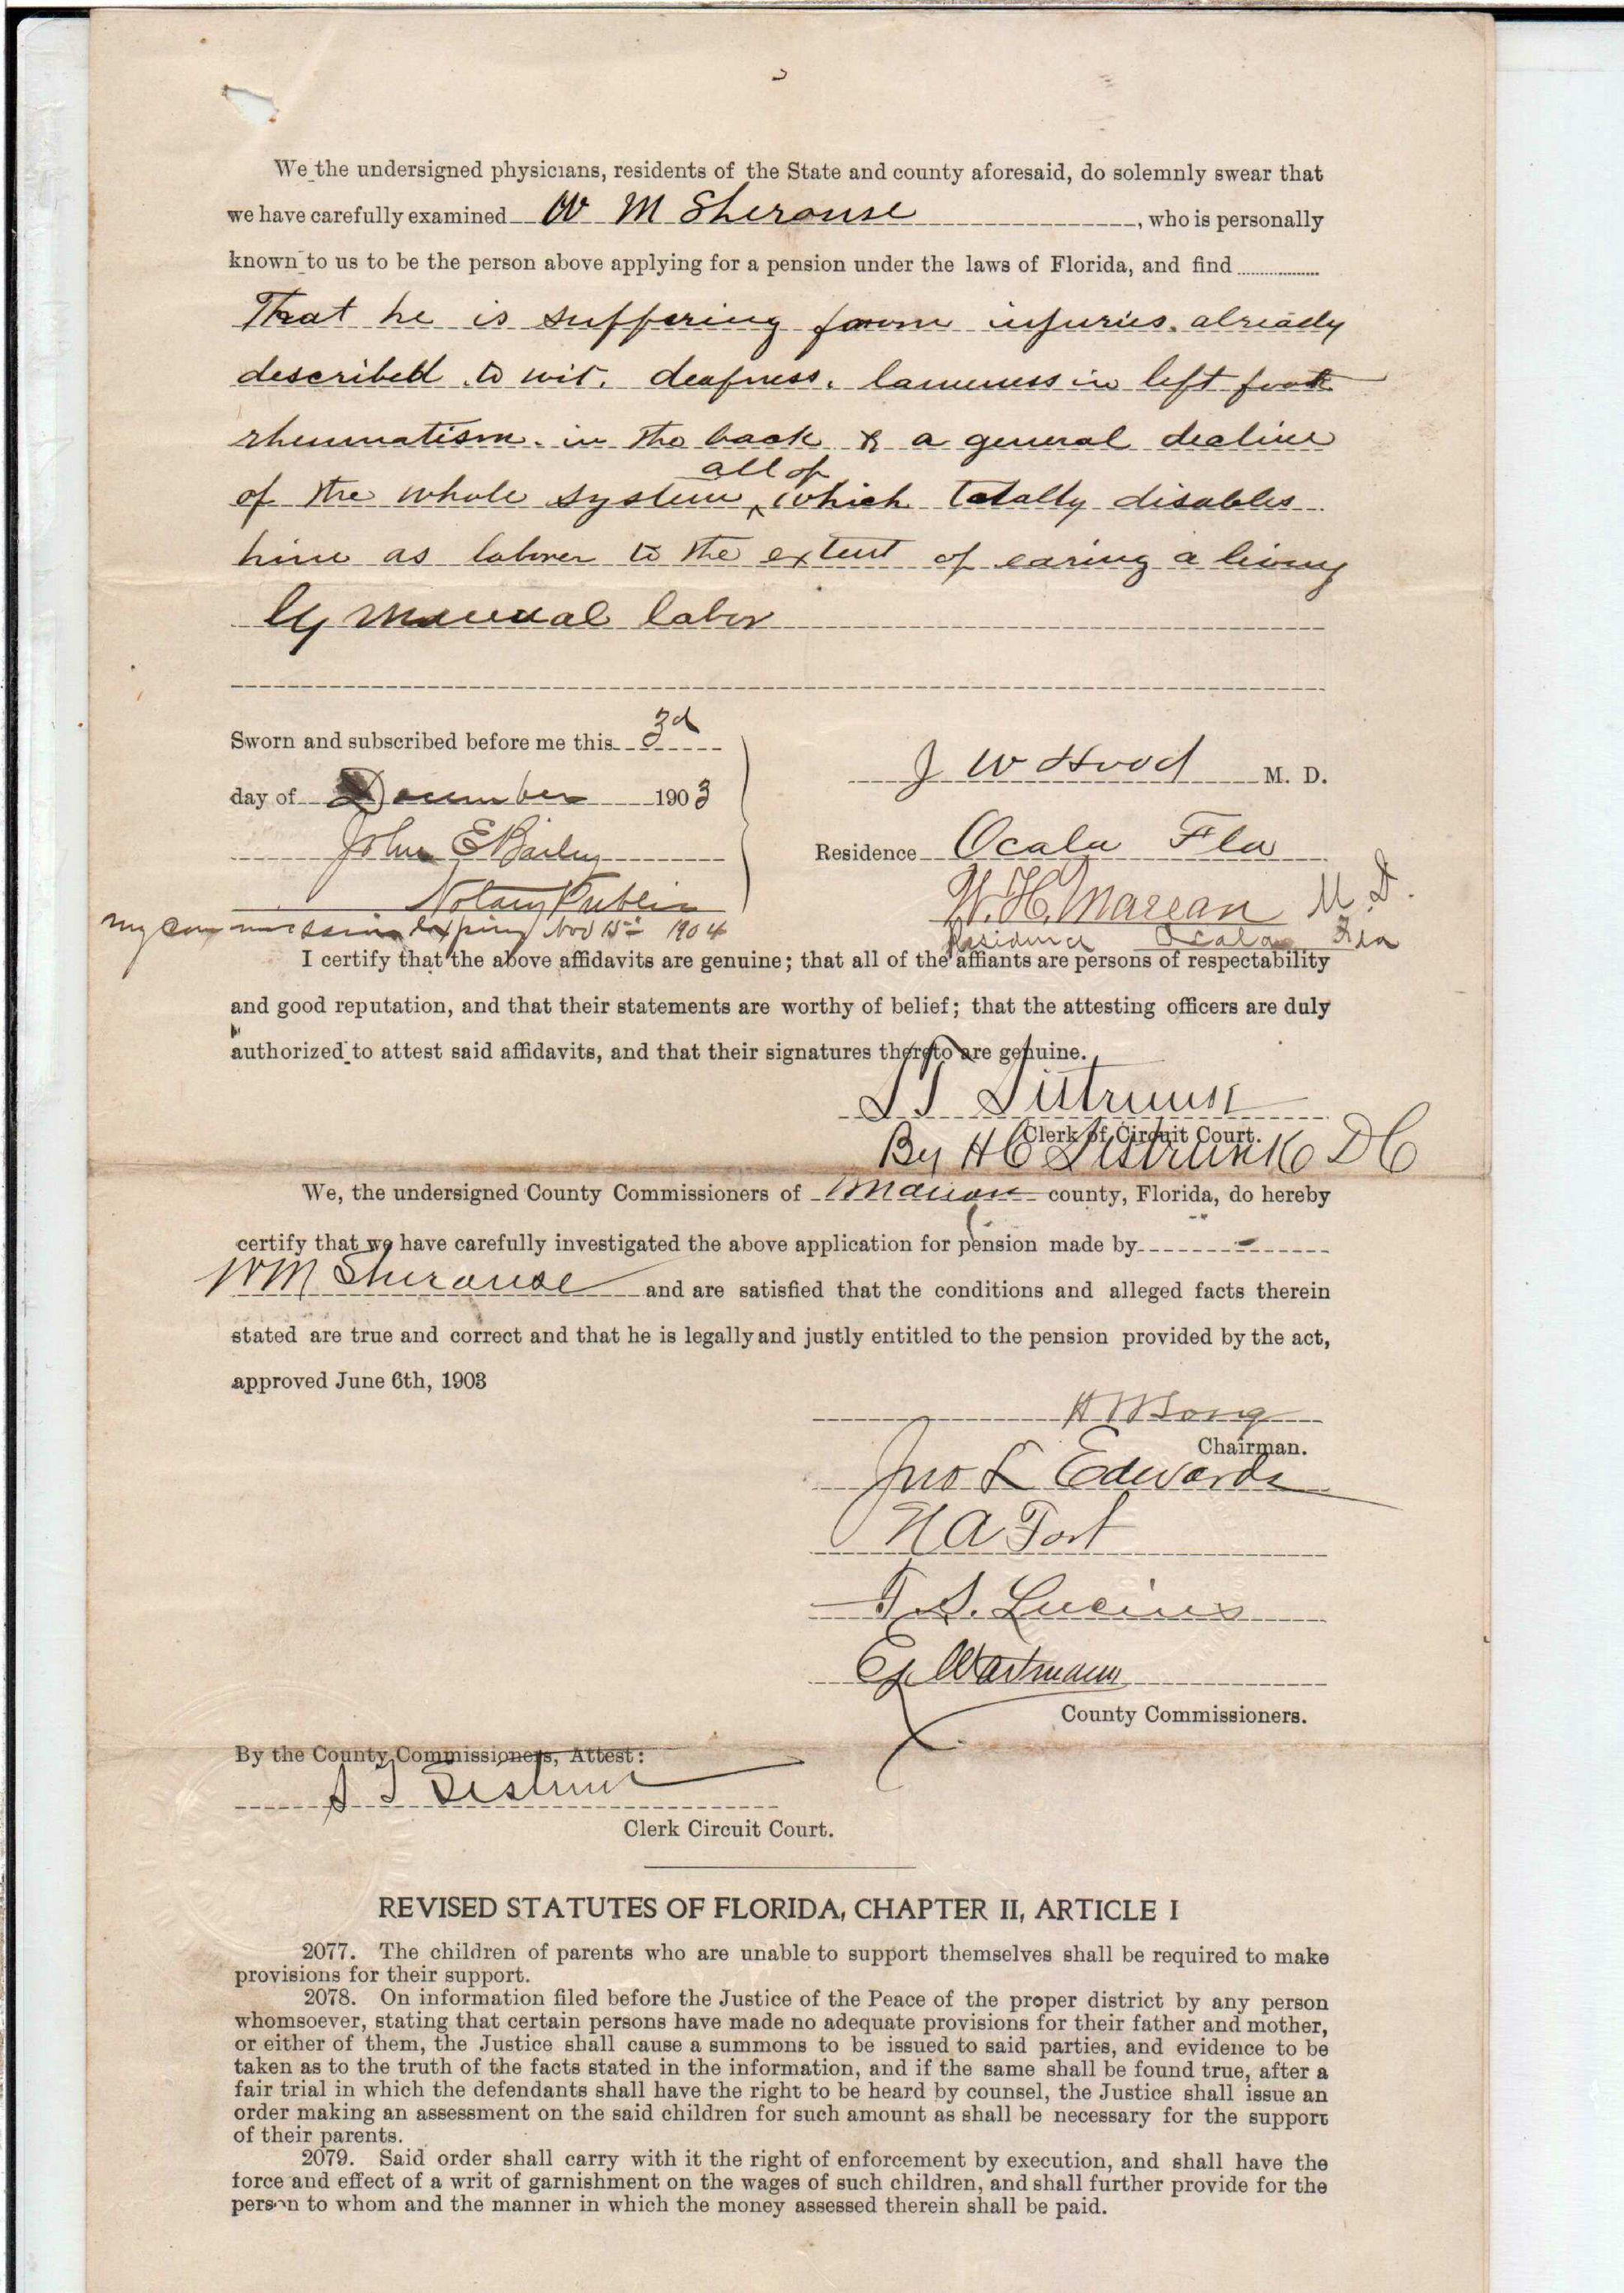 We the undersigned physicians, residents of the State and county aforesaid, do solemnly swear that
we have carefully examined W M Sherouse, who is personally
known to us to be the person above applying for a pension under the laws of Florida, and find
That he is suffering from injuries already
described to wit. deafness. lameness in left foot
rheumatism. in the back & a general decline
all of
of the whole system ^ which totally disables
him as laborer to the extent of earing a living
by manual labor
Sworn and subscribed before me this 3d
day of December 1903
John E Bailey
Notary Public
my commission expires Nov 15 1904
J W Hood M. D.
Residence Ocala Fla
W. H. Marean M. D.
Residence Ocala Fla
I certify that the above affidavits are genuine; that all of the affiants are persons of respectability
and good reputation, and that their statements are worthy of belief; that the attesting officers are duly
authorized to attest said affidavits, and that their signatures thereto are genuine.
S T Sistrunk
Clerk of Circuit Court.
By H C Sistrunk D C
We, the undersigned County Commissioners of Marion county, Florida, do hereby
certify that we have carefully investigated the above application for pension made by
W M Sherouse and are satisfied that the conditions and alleged facts therein
stated are true and correct and that he is legally and justly entitled to the pension provided by the act,
approved June 6th, 1903
H W Long
Chairman.
Jno L Edwards
N A Fort
T. S. Lucius
E L Wartmann
County Commissioners.
By the County Commissioners, Attest:
S T Sistrunk
Clerk Circuit Court.
REVISED STATUTES OF FLORIDA, CHAPTER II, ARTICLE I
2077. The children of parents who are unable to support themselves shall be required to make
provisions for their support.
2078. On information filed before the Justice of the Peace of the proper district by any person
whomsoever, stating that certain persons have made no adequate provisions for their father and mother,
or either of them, the Justice shall cause a summons to be issued to said parties, and evidence to be
taken as to the truth of the facts stated in the information, and if the same shall be found true, after a
fair trial in which the defendants shall have the right to be heard by counsel, the Justice shall issue an
order making an assessment on the said children for such amount as shall be necessary for the support
of their parents.
2079. Said order shall carry with it the right of enforcement by execution, and shall have the
force and effect of a writ of garnishment on the wages of such children, and shall further provide for the
person to whom and the manner in which the money assessed therein shall be paid.